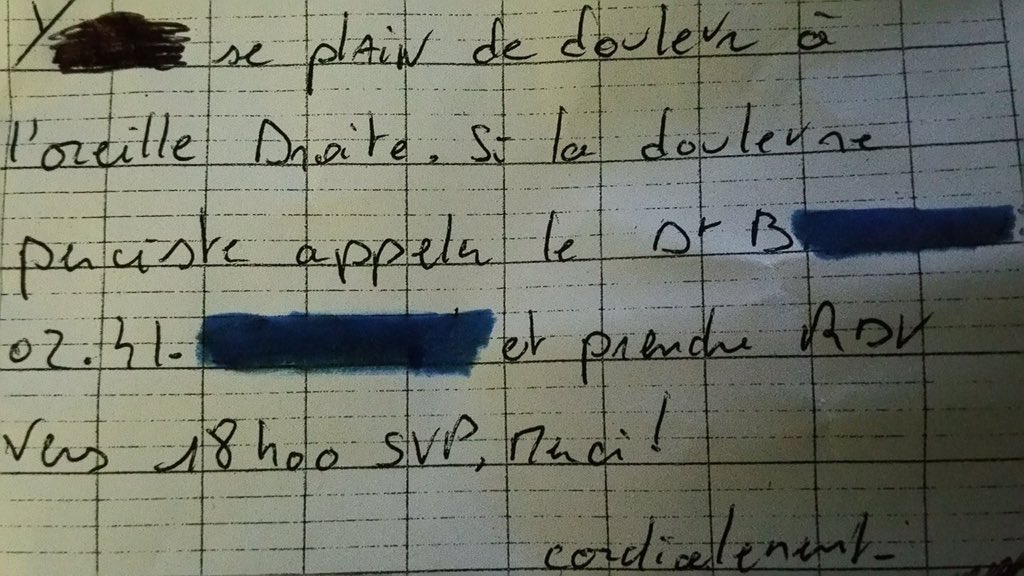 Y se plAiN de douleur à
l'oreille Droite. Si la douleur ne
persiste appeler le Dr B
02.41. et prendre RDV
Vers 18h00 SVP, Merci !
cordialement-